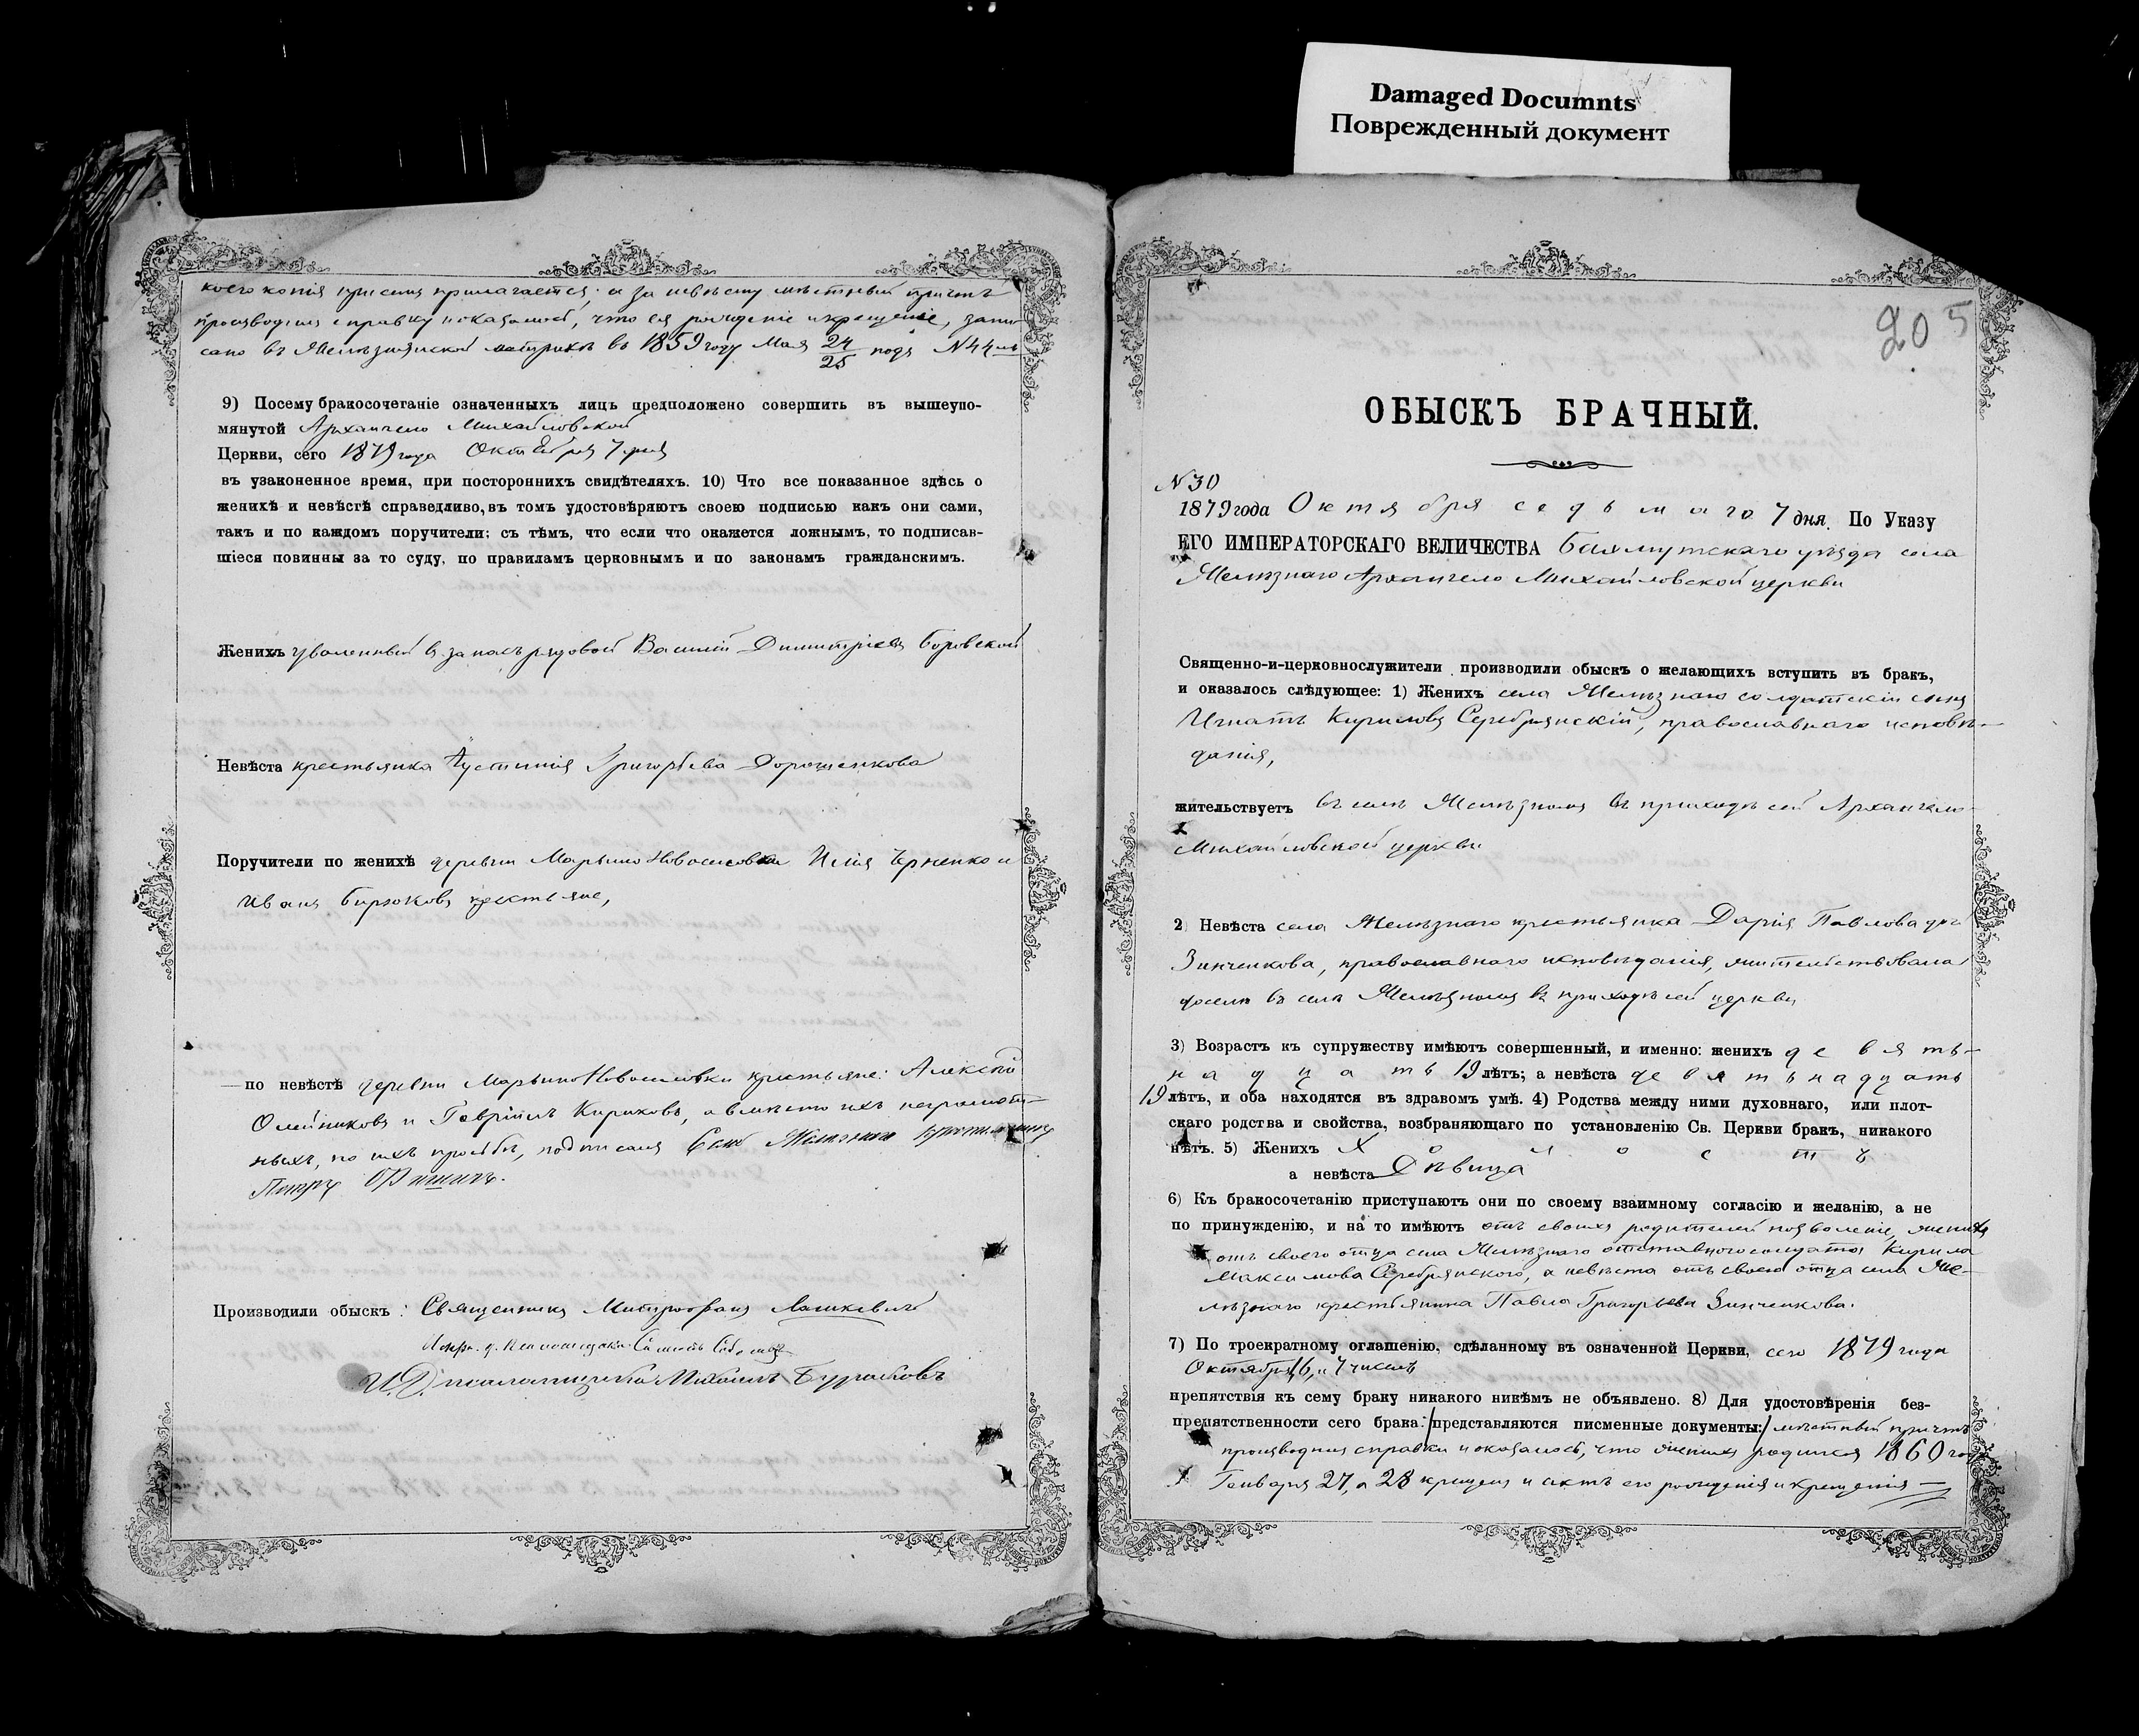 Damaged Documnts
Поврежденный документ
коего копія присемъ прилагается; а за невѣсту мѣстный причтъ
производилъ справку и оказалось, что ея рожденіе и крещеніе, запи
сано въ Желѣзнянской метрикѣ въ 1859 году Мая 24/25 подъ №44мъ
9) Посему бракосочетаніе означенныхъ лицъ предположено совершить въ вышеупо-
мянутой Архангело Михайловской
Церкви, сего 1879 года Октября 7 дня
въ узаконенное время, при постороннихъ свидѣтеляхъ. 10) Что все показанное здѣсь о
женихѣ и невѣстѣ справедливо, въ томъ удостовѣряютъ своею подписью какъ они сами,
такъ и по каждомъ поручители; съ тѣмъ, что если что окажется ложнымъ, то подписав-
шіеся повинны за то суду, по правиламъ церковнымъ и по законамъ гражданскимъ.
Женихъ уволенный въ запасъ рядовой Василій Димитріевъ Боровской
Невѣста крестьянка Іустинія Григорьева Дорошенкова
Поручители по женихѣ деревни Марьино Новоселовки Илія Черненко и
Иванъ Бирюковъ крестьяне,
— по невѣстѣ деревни Марьино Новоселовки крестьяне: Алексѣй
Олейниковъ и Гавріилъ Кириковъ, а вмѣсто ихъ неграмот-
ныхъ, по ихъ просьбѣ, подписалъ Села Желѣзнаго крестьянинъ
Петръ
Производили обыскъ: Священникъ Митрофанъ Лашкевичъ
И. Д. псаломщика Михаилъ Бурлаковъ
205
ОБЫСКЪ БРАЧНЫЙ.
№30
1879 года Октября седьмаго 7 дня. По Указу
ЕГО ИМПЕРАТОРСКАГО ВЕЛИЧЕСТВА Бахмутскаго уѣзда села
Желѣзнаго Архангело Михайловской церкви
Священно-и-церковнослужители производили обыскъ о желающихъ вступить въ бракъ,
и оказалось слѣдующее: 1) Женихъ села Желѣзнаго солдатскій сынъ
Игнатъ Кириловъ Серебрянскій, православнаго исповѣ-
данія,
жительствуетъ въ селѣ Желѣзномъ въ приходѣ сей Архангело-
Михайловской церкви
2) Невѣста села Желѣзнаго крестьянка Дарія Павлова дочь
Зинченкова, православнаго исповѣданія, жительствовала
доселѣ въ селѣ Желѣзномъ въ приходѣ сей церкви
3) Возрастъ къ супружеству имѣютъ совершенный, и именно: женихъ девять-
надцать 19 лѣтъ; а невѣста девятьнадцать
19 лѣтъ, и оба находятся въ здравомъ умѣ. 4) Родства между ними духовнаго, или плот-
скаго родства и свойства, возбраняющаго по установленію Св. Церкви бракъ, никакого
нѣтъ. 5) Женихъ Холостъ
а невѣста Дѣвица
6) Къ бракосочетанію приступаютъ они по своему взаимному согласію и желанію, а не
по принужденію, и на то имѣютъ отъ своихъ родителей позволеніе, женихъ
отъ своего отца села Желѣзнаго отставного солдата Кирила
Максимова Серебрянского, а невѣста отъ своего отца села Же-
лѣзнаго крестьянина Павла Григорьева Зинченкова.
7) По троекратному оглашенію, сдѣланному въ означенной Церкви, сего 1879 года
Октября 6, и 7 чиселъ
препятствія къ сему браку никакого никѣмъ не объявлено. 8) Для удостовѣренія без-
препятственности сего брака: представляются писменные документы: мѣстный причтъ
производилъ справки и оказалось, что женихъ родился 1860 года
Генваря 27, а 28 крещенъ и актъ его рожденія и крещенія —